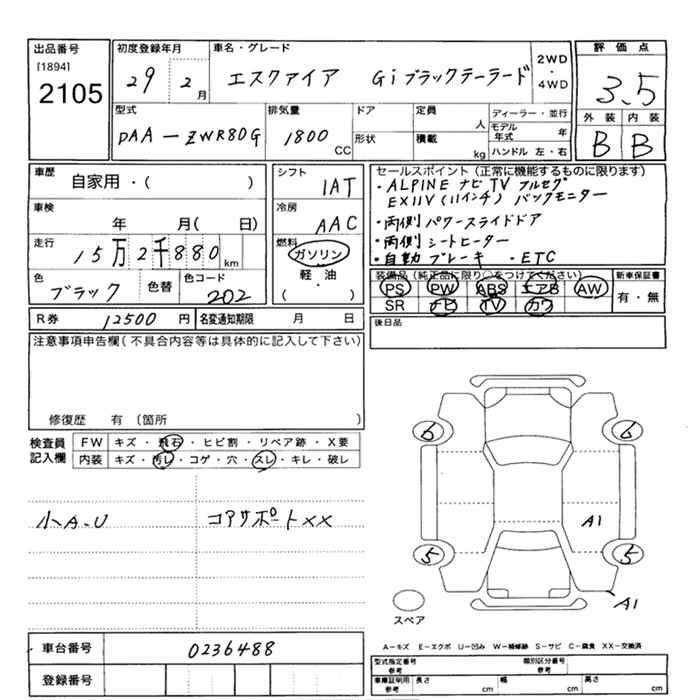 出品番号
[1894]
2105
初度登録年月
29 2月
車名・グレード
エスクァイア Giブラックテーラード
2WD
・
4WD
評価点
3.5
外装 内装
B B
型式
DAA-ZWR80G
排気量
1800
CC
ドア
形状
定員
人
積載
kg
ディーラー・並行
モデル年式 年
ハンドル 左・右
車歴
自家用・( )
車検
年 月( 日)
走行
15万2千880km
色
ブラック
色替
色コード
202
シフト
IAT
冷房
AAC
燃料
ガソリン
軽油
( ・ )
セールスポイント(正常に機能するものに限ります)
・ALPINE ナビTV フルセグ
EX11V(11インチ)バックモニター
・両側パワースライドドア
・両側シートヒーター
・自動ブレーキ ・ETC
装備品(純正品に限り○をつけてください)
PS PW ABS エアB AW
SR ナビ TV カワ
新車保証書
有・無
後日品
R券 12500円
名変通知期限 月 日
注意事項申告欄(不具合内容等は具体的に記入して下さい)
修復歴 有 〔箇所 〕
検査員記入欄
FW キズ・飛石・ヒビ割・リペア跡・X要
内装 キズ・汚レ・コゲ・穴・スレ・キレ・破レ
小A.U
コアサポートXX
6 6
A1
5 5
A1
スペア
車台番号
0236488
登録番号
A-キズ E-エクボ U-凹み W-補修跡 S-サビ C-腐食 XX-交換済
型式指定番号
参考
類別区分番号
参考
車庫証明用
参考
長さ cm
幅 cm
高さ cm